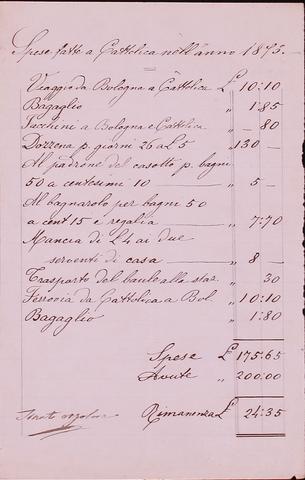 Spese fatte a Cattolica nell'anno 1875.
Viaggio da Bologna a Cattolica £ 10:10
Bagaglio " 1:85
Facchini a Bologna e Cattolica " – 80
Dozzena p. giorni 26 a £5 " 130 –
Al padrone del casotto p. bagni
50 a centesimi 10 – " 5 –
Al bagnarolo per bagni 50
a cent 15 e regalia " 7:70
Mancia di £4 ai due
serventi di casa – " 8 –
Trasporto del baule alla staz. " 30
Ferrovia da Cattolica a Bol. " 10:10
Bagaglio " 1:80
Spese £ 175:65
Avute " 200:00
Rimanenza £ 24:35